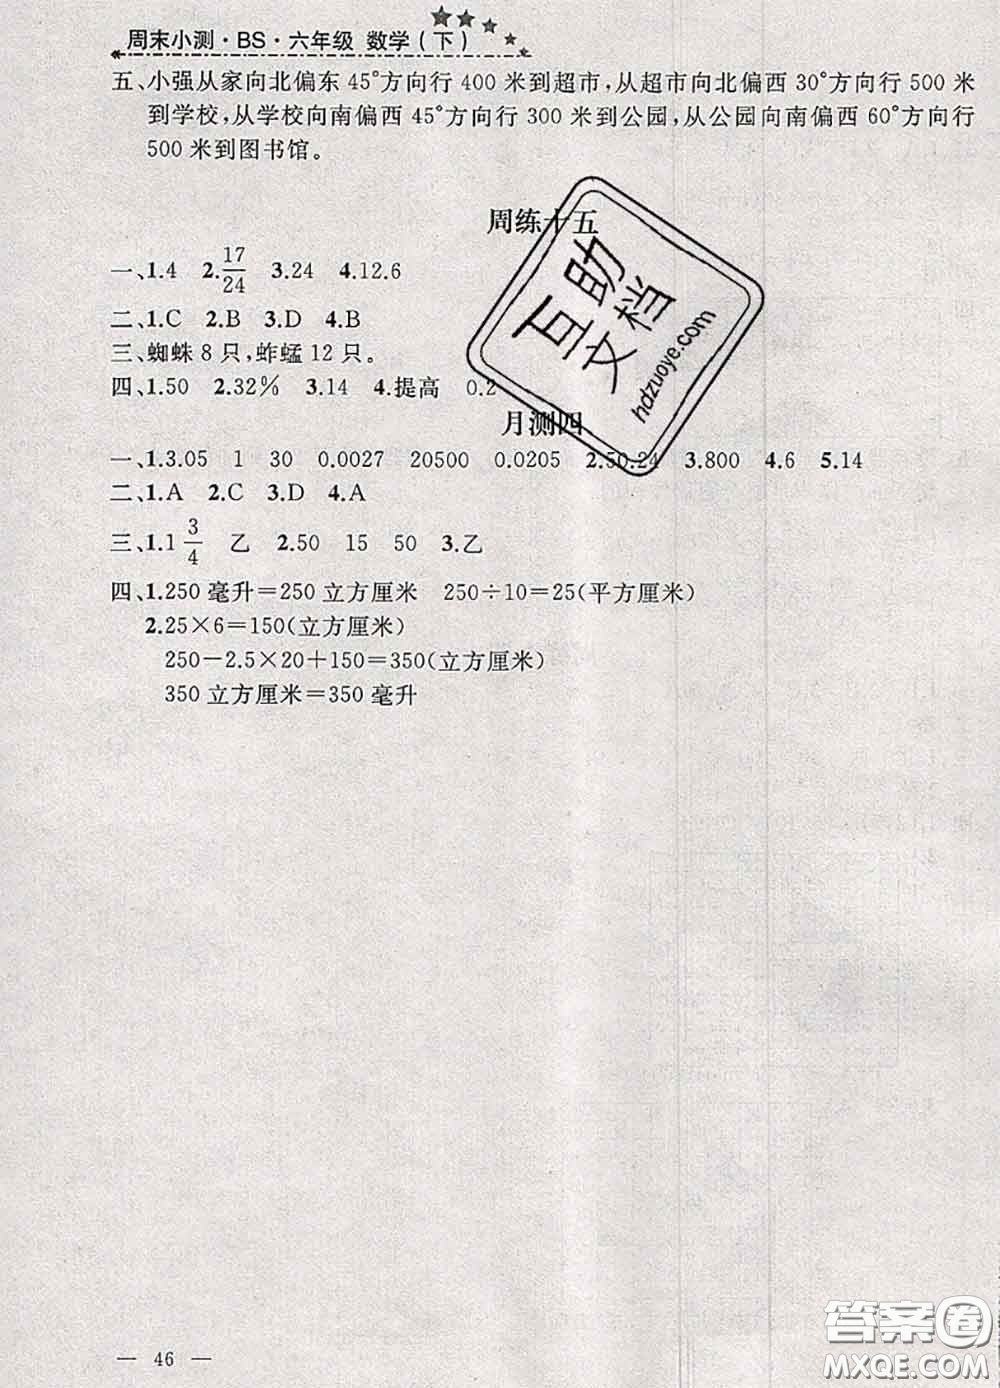 周末小测·BS·六年级 数学(下)
五、小强从家向北偏东45°方向行400米到超市,从超市向北偏西30°方向行500米
到学校,从学校向南偏西45°方向行300米到公园,从公园向南偏西60°方向行
500米到图书馆。
周练十五
一、1.4 2.17/24 3.24 4.12.6
二、1.C 2.B 3.D 4.B
三、蜘蛛8只,蚱蜢12只。
四、1.50 2.32% 3.14 4.提高 0.2
月测四
一、1.3.05 1 30 0.0027 20500 0.0205 2.50.24 3.800 4.6 5.14
二、1.A 2.C 3.D 4.A
三、1.1 3/4 乙 2.50 15 50 3.乙
四、1.250毫升=250立方厘米 250÷10=25(平方厘米)
2.25×6=150(立方厘米)
250-2.5×20+150=350(立方厘米)
350立方厘米=350毫升
互助
文档
hdzuoye.com
— 46 —
答案圈
MXQE.COM